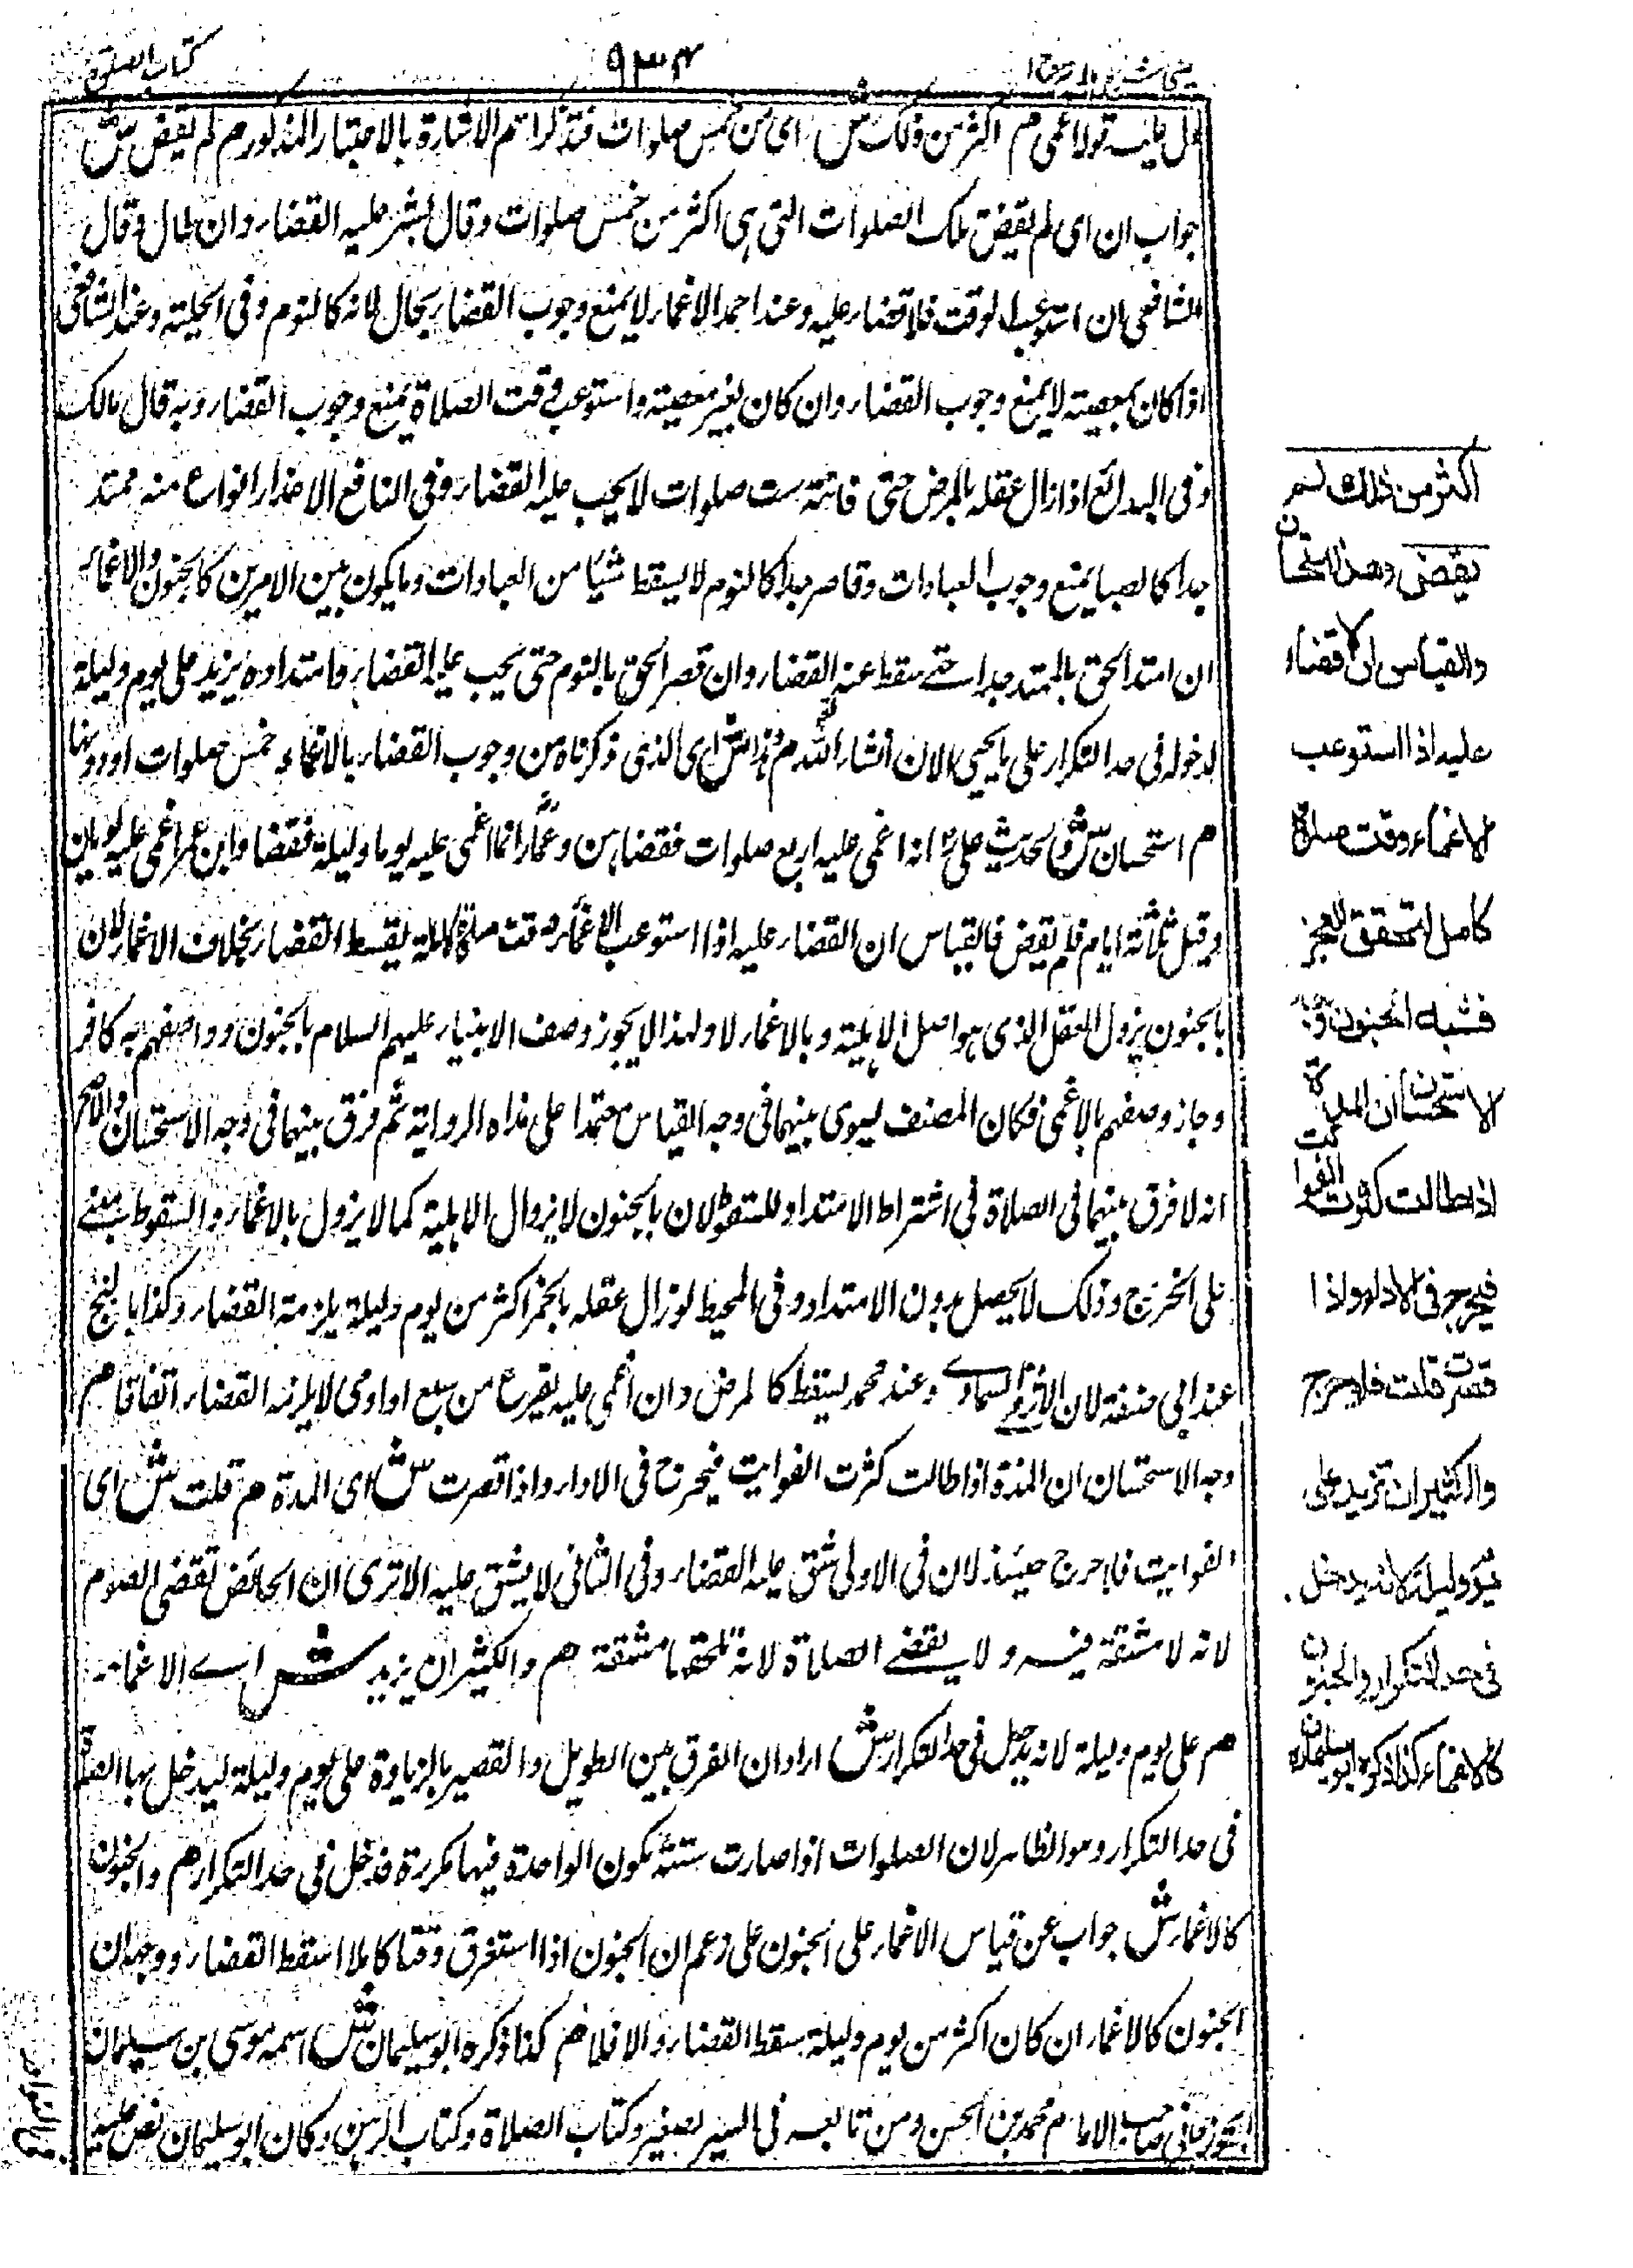 كتاب الصلوة
٩٣٤
عينى شرح هداية ج ١
يدل عليه قوله اغمي م اكثر من ذلك ش اى من خمس صلوات فتذكر اسم الاشارة بالاعتبار المذكور م لم يقض ش
جواب ان اى لم يقض تلك الصلوات التى هى اكثر من خمس صلوات وقال بشر عليه القضاء وان طال وقال
الشافعى ان استوعب الوقت فلا قضاء عليه وعند احمد الاغماء لا يمنع وجوب القضاء بحال لانه كالنوم وفى الحلية وعند الشافعى
اذا كان بمعصية لا يمنع وجوب القضاء وان كان بغير معصية واستوعب وقت الصلاة يمنع وجوب القضاء وبه قال مالك
وفى البدائع اذا زال عقله بالمرض حتى فاتته ست صلوات لا يجب عليه القضاء وفى النافع الاعذار انواع منه ممتد
جدا كالصبا يمنع وجوب العبادات وقاصر جدا كالنوم لا يسقط شيئا من العبادات وما يكون بين الامرين كالجنون والاغماء
ان امتد الحق بالممتد جدا حتى سقط عنه القضاء وان قصر الحق بالنوم حتى يجب عليه القضاء فامتداده يزيد على يوم وليلة
لدخوله فى حد التكرار على ما يجيى الان انشاء الله م وهذا ش اى الذى ذكرناه من وجوب القضاء بالاغماء خمس صلوات او دونها
م استحسان ش لحديث على رض انه اغمى عليه اربع صلوات فقضاهن وعمار رض انما اغمى عليه يوما وليلة فقضا وابن عمر اغمى عليه يومان
وقيل ثلاثة ايام فلم يقض فالقياس ان القضاء عليه اذا استوعب الاغماء وقت صلاة كاملة يسقط القضاء بخلاف الاغماء لان
بالجنون يزول العقل الذى هو اصل الاهلية وبالاغماء لا ولهذا لا يجوز وصف الانبياء عليهم السلام بالجنون وواصفهم به كافر
وجاز وصفهم بالاغمى فكان المصنف يسوى بينهما فى وجه القياس معتمدا على هذه الرواية ثم فرق بينهما فى وجه الاستحسان والاصح
انه لا فرق بينهما فى الصلاة فى اشتراط الامتداد للسقوط لان بالجنون لا يزوال الاهلية كما لا يزول بالاغماء والسقوط يبتنى
على الحرج وذلك لا يحصل بدون الامتداد وفى المحيط لو زال عقله بالخمر اكثر من يوم وليلة يلزمه القضاء وكذا بالبنج
عند ابى حنيفة لان السماوى وعند محمد يسقط كالمرض وان اغمى عليه بفزع من سبع او ادمى لا يلزمه القضاء اتفاقا م
وجه الاستحسان ان المدة اذا طالت كثرت الفوايت فيحرج فى الاداء واذا قصرت ش اى المدة م قلت ش اى
الفوايت فلا حرج حينئذ لان فى الاولى شق عليه القضاء وفى الثانى لا يشق عليه الا ترى ان الحائض تقضى الصوم
لانه لا مشقة فيه ولا يقضى الصلاة لانه تلحقها مشقة م والكثير ان يزيد ش اى الاغماء
م على يوم وليلة لانه يدخل فى حد التكرار ش اراد ان الفرق بين الطويل والقصير بالزيادة على يوم وليلة ليدخل بها الصلاة
فى حد التكرار وهو الظاهر لان الصلوات اذا صارت ستة تكون الواحدة فيها مكررة فدخل فى حد التكرار م والجنون
كالاغماء ش جواب عن قياس الاغماء على الجنون على زعم ان الجنون اذا استغرق وقتا كاملا اسقط القضاء ووجه ان
الجنون كالاغماء ان كان اكثر من يوم وليلة سقط القضاء والا فلا م كذا ذكره ابو سليمان ش اسمه موسى بن سليمان
الجوزجانى صاحب الامام محمد بن الحسن ومن تابعه فى السير الصغير وكتاب الصلاة وكتاب الرهن وكان ابو سليمان
اكثر من ذلك لم
يقض وهذا استحسان
والقياس ان لا قضاء
عليه اذا استوعب
الاغماء وقت صلاة
كامل لتحقق العجز
فشبه الجنون وجه
الاستحسان ان المدة
اذا طالت كثرت الفوائت
فيحرج فى الاداء واذا
قصرت قلت فلا حرج
والكثير ان تزيد على
يوم وليلة لانه يدخل
فى حد التكرار والجنون
كالاغماء كذا ذكره ابو سليمان